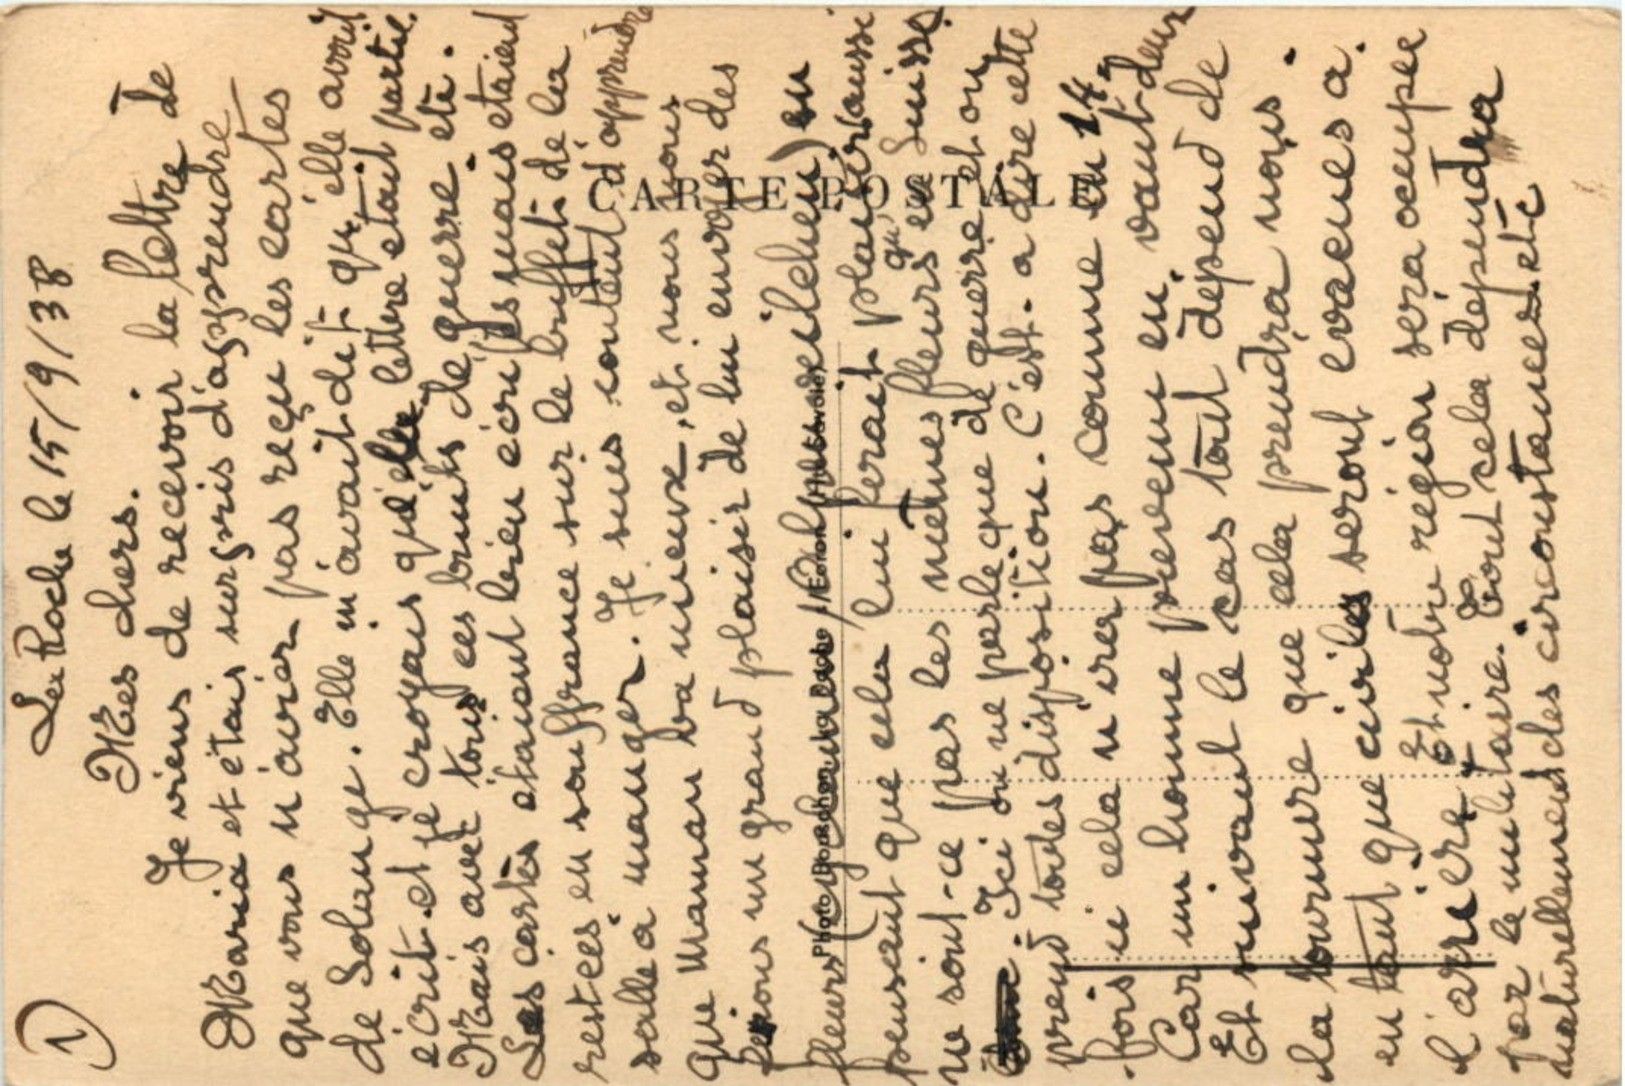 1
La Roche le 15/9/38
Mes chers.
Je viens de recevoir la lettre de
Maria et étais surpris d'apprendre
que vous n'aviez pas reçu les cartes
de Solange. Elle m'avait dit qu'elle avait
écrit et je croyais qu'elle lettre etait partie.
Mais avec tous ces bruits de guerre etc.
Les cartes étaient bien écrites mais etaient
restées en souffrance sur le buffet de la
salle à manger. Je suis content d'apprendre
que Maman va mieux, et nous nous
ferons un grand plaisir de lui envoyer des
fleurs (cyclamen) en
pensant que cela lui ferait plaisir, aussi
ne sont-ce pas les mêmes fleurs qu'en Suisse.
Ici on ne parle que de guerre et on
prend toutes dispositions. C'est-a dire cette
fois ci cela n'ira pas comme en 14.
Car un homme prevenu en vaut deux
Et suivant le cas tout dépend de
la tournure que cela prendra nous
en tant que civiles seront evacues a
l'arriere. Et notre région sera occupee
par le militaire. Tout cela dépendra
naturellement des circonstances etc
CARTE POSTALE